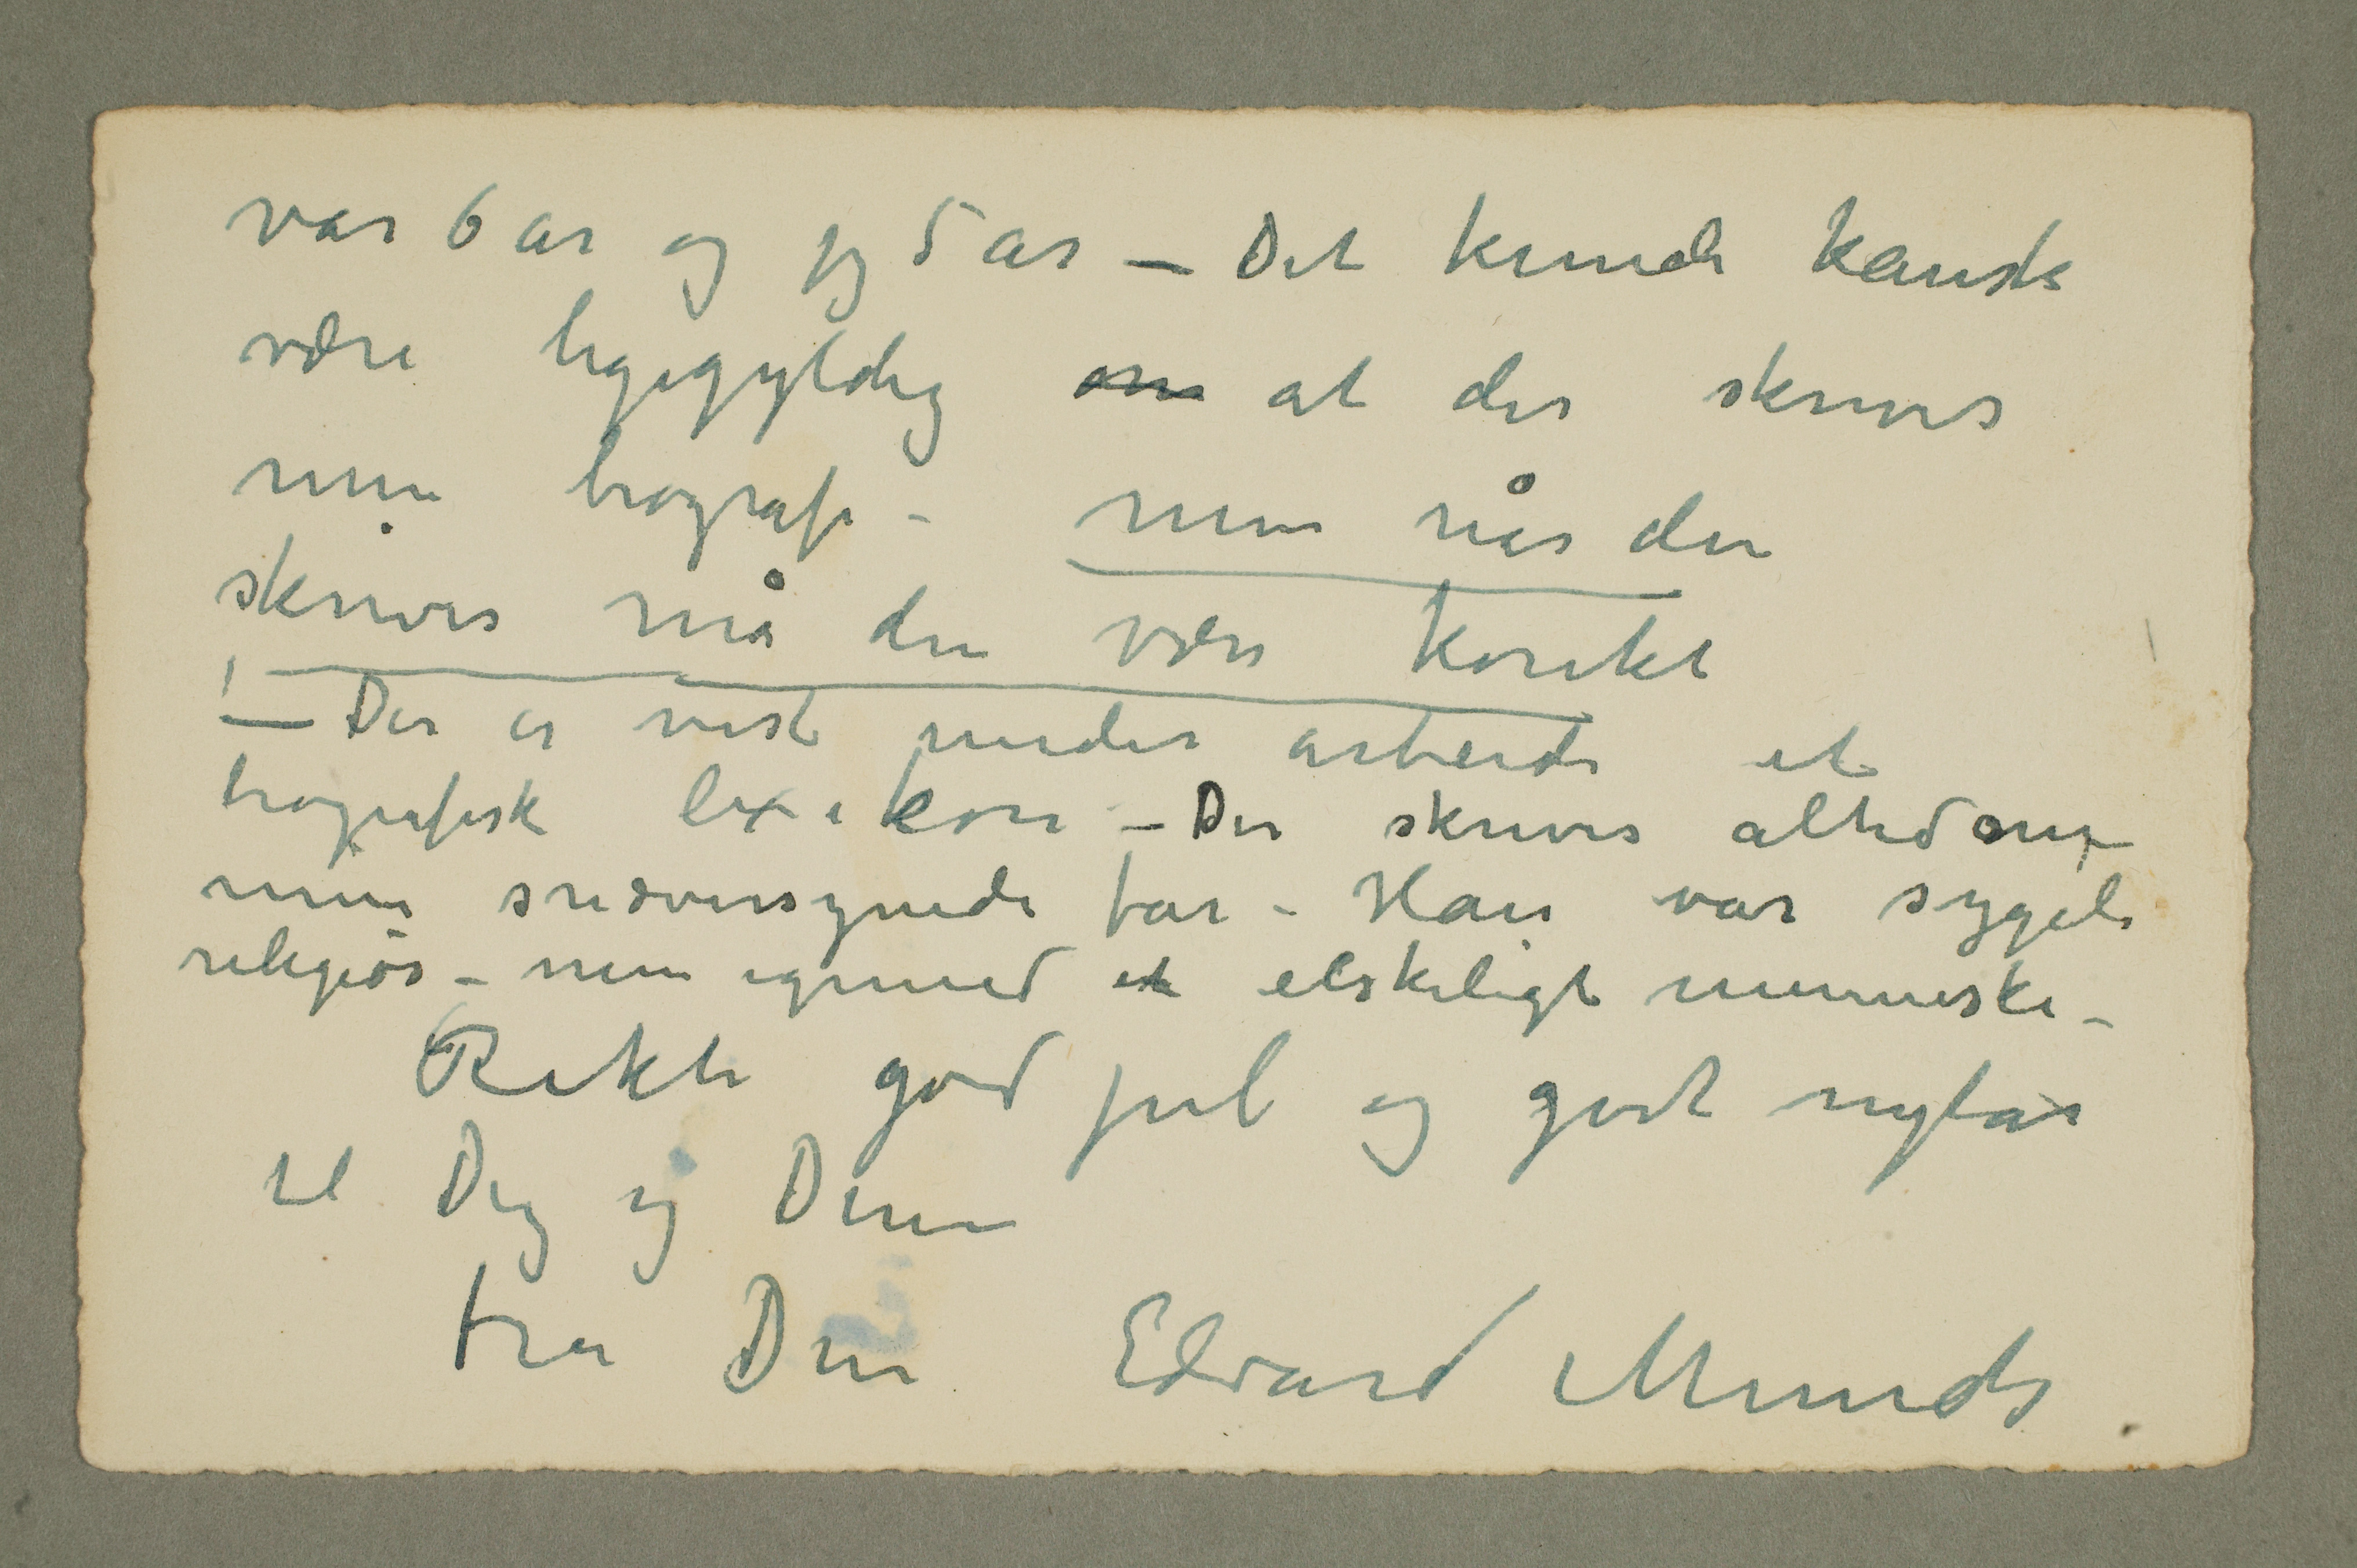 var 6 år og jeg 5 år – Det kunde kanske
være ligegyldig om at der skrives
min biografi – men når den
skrives må den være korekt
– Der er vist under arbeide et
biografisk lexikon – Der skrives altid om
min snæversynede far – Han var sygeli
religiøs – men igrund et elskeligt menneske –
Rikti god jul og godt nytår
til Dig og Dine
fra Din Edvard Munch